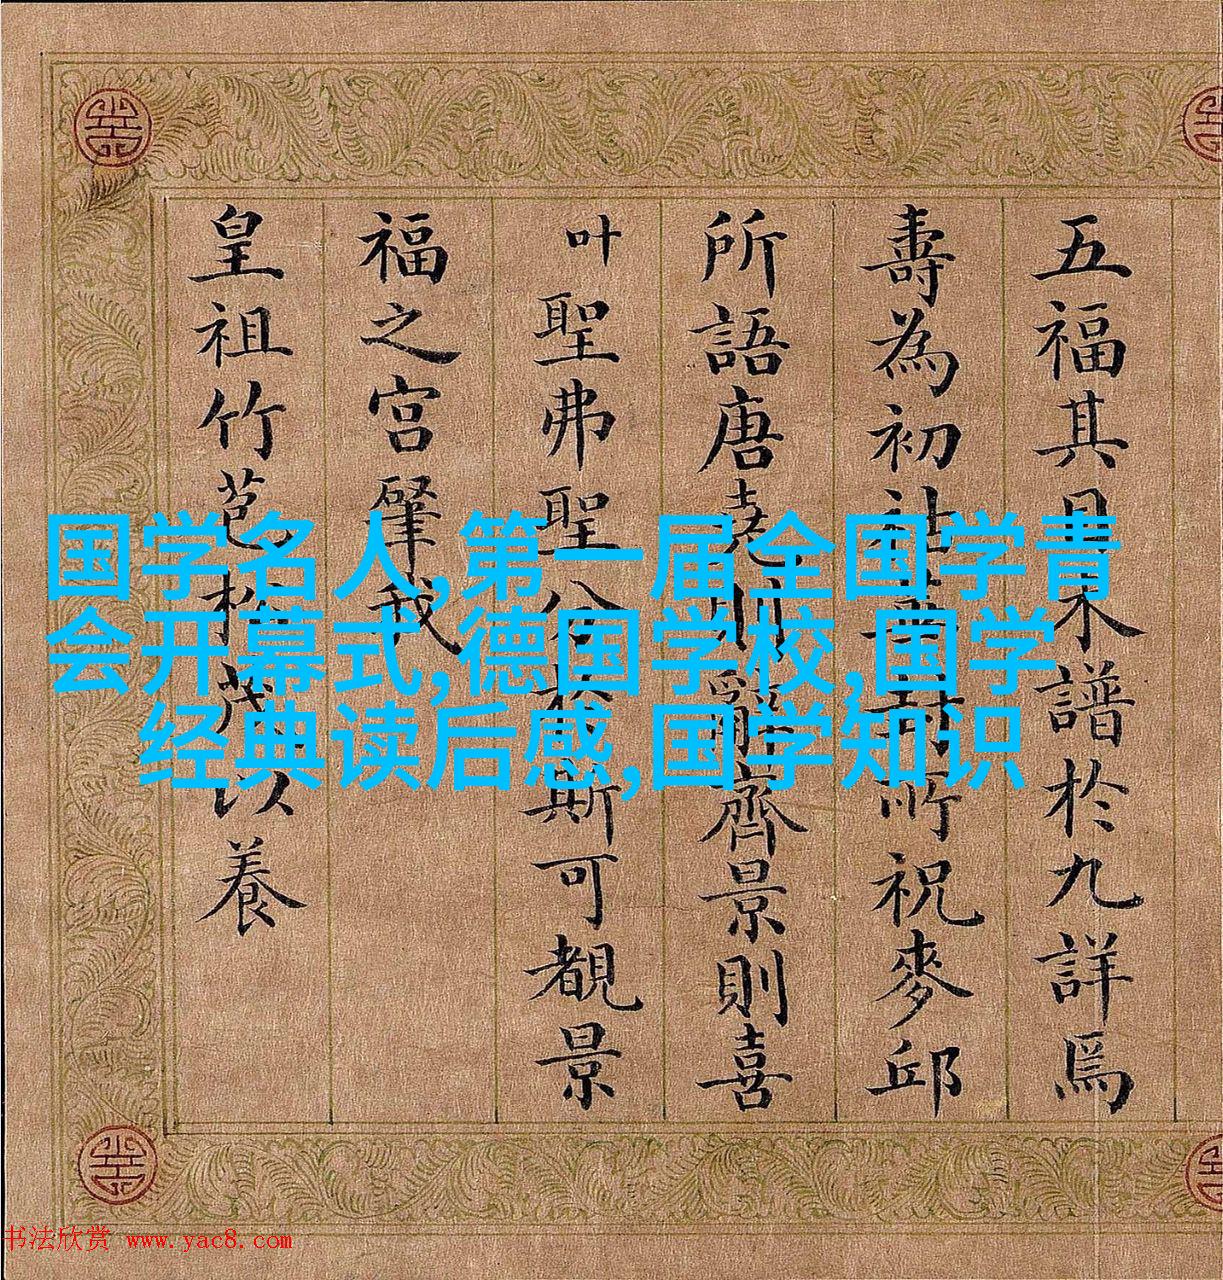 五福其目不譜於九詳焉
壽為初祉華封所祝麥邱
所語唐堯則辭齊景則喜
叶聖弗聖公於斯可覩景
福之宮肇我
皇祖竹苞松茂以養
国学名人,第一届全国学青
会开幕式,德国学校,国学
经典读后感,国学知识
书法欣赏 www.yac8.com